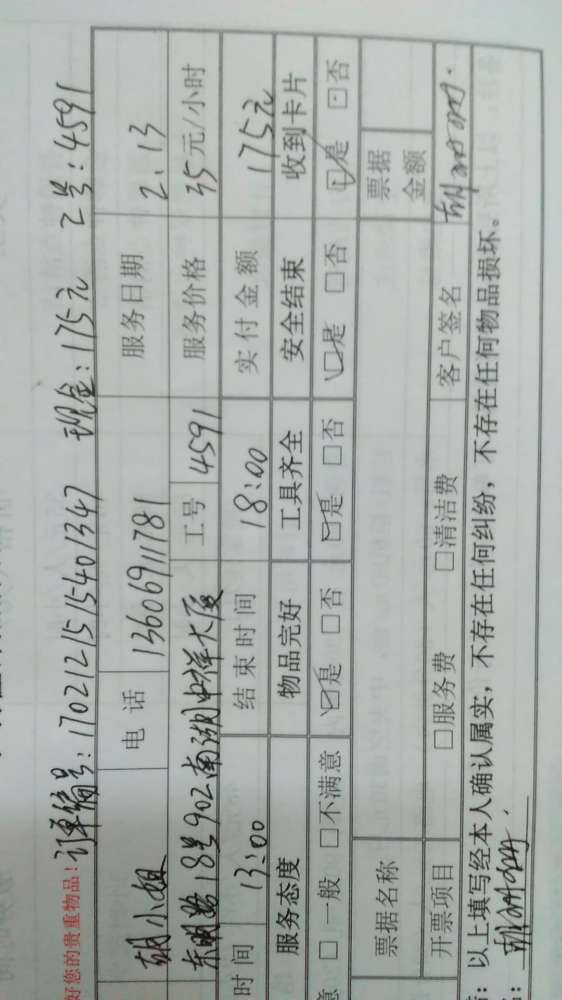 好您的贵重物品！订单编号：170212151540 1347 现金：175元 工号：4591
胡小姐 电话 13606911781 服务日期 2.13
18号902南湖中祥大厦 工号 4591 服务价格 35元/小时
时间 13：00 结束时间 18：00 实付金额 175元
服务态度 物品完好 工具齐全 安全结束 收到卡片
意 □一般 □不满意 ☑是 □否 ☑是 □否 ☑是 □否 ☑是 □否
票据名称 票据金额
开票项目 □服务费 □清洁费 客户签名
：以上填写经本人确认属实，不存在任何纠纷，不存在任何物品损坏。